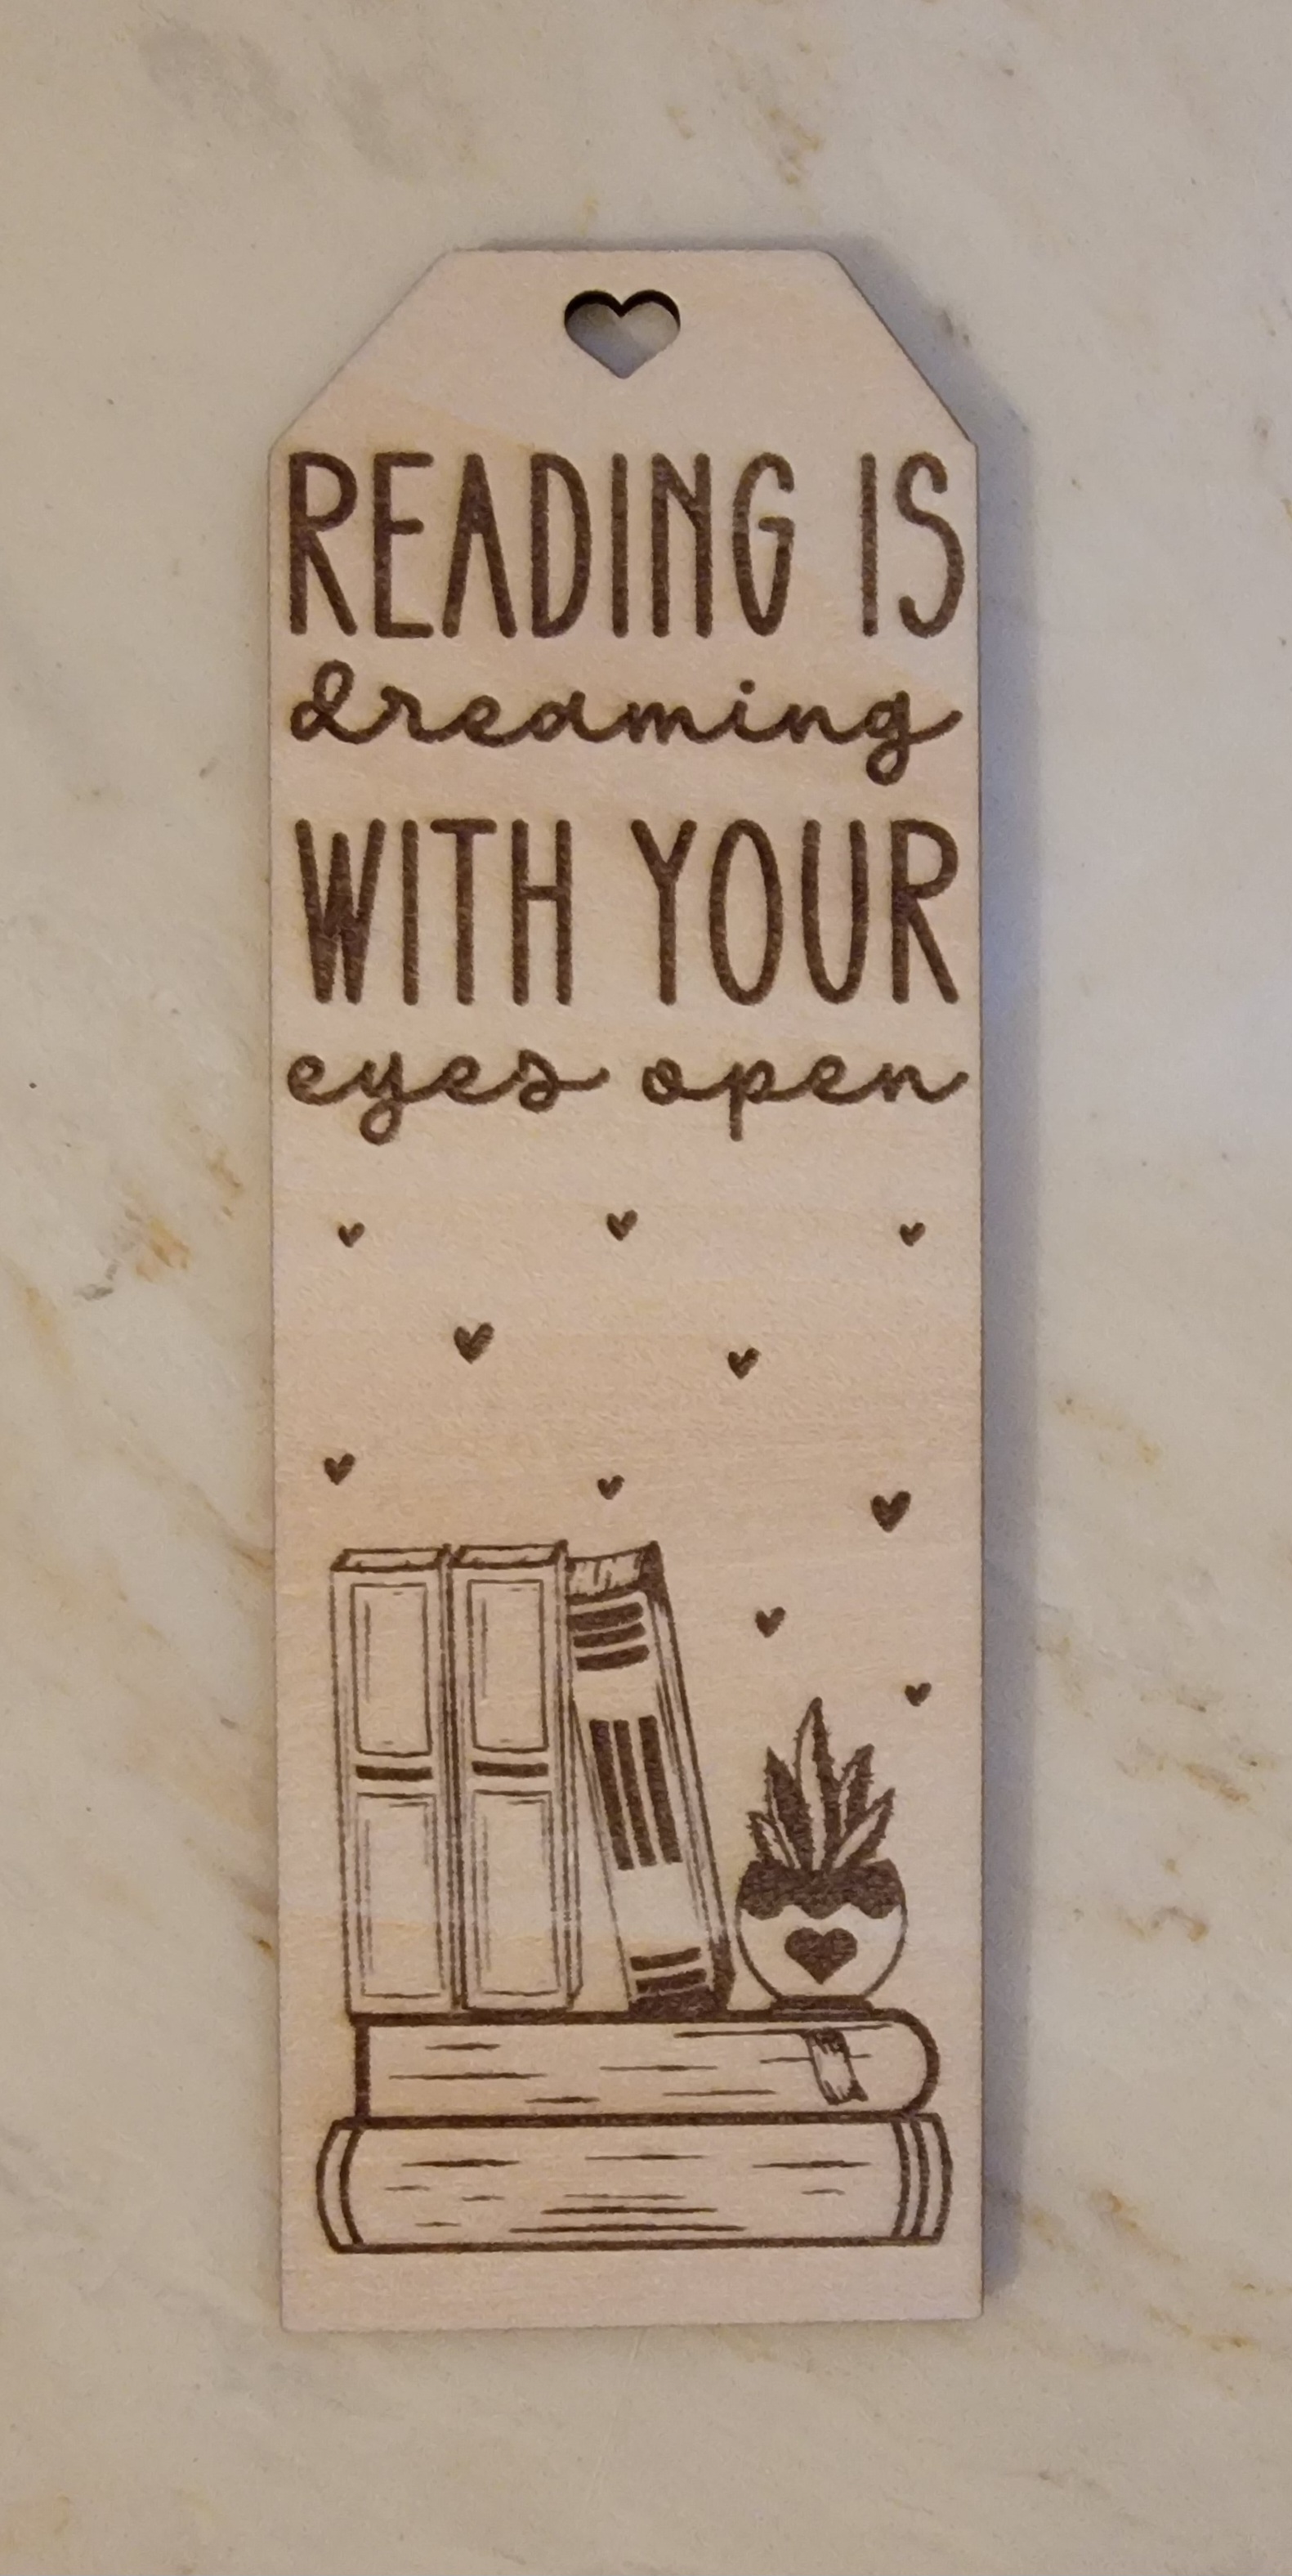 READING IS
dreaming
WITH YOUR
eyes open